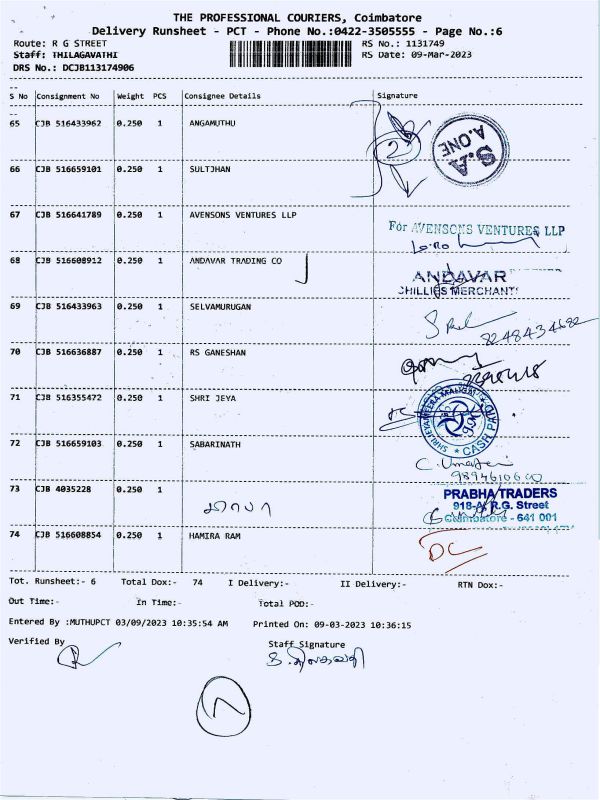 THE PROFESSIONAL COURIERS, Coimbatore
Delivery Runsheet - PCT - Phone No.:0422-3505555 - Page No.:6
Route: R G STREET RS No.: 1131749
Staff: THILAGAVATHI RS Date: 09-Mar-2023
DRS No.: DCJB113174906
S No Consignment No Weight PCS Consignee Details Signature
65 CJB 516433962 0.250 1 ANGAMUTHU
2
S.A
A.ONE
66 CJB 516659101 0.250 1 SULTJHAN
67 CJB 516641789 0.250 1 AVENSONS VENTURES LLP
For AVENSONS VENTURES LLP
68 CJB 516608912 0.250 1 ANDAVAR TRADING CO
ANDAVAR
CHILLIES MERCHANTS
69 CJB 516433963 0.250 1 SELVAMURUGAN
8248434682
70 CJB 516636887 0.250 1 RS GANESHAN
71 CJB 516355472 0.250 1 SHRI JEYA
72 CJB 516659103 0.250 1 SABARINATH
9894610600
73 CJB 4035228 0.250 1
பிரபா
PRABHA TRADERS
918-A, R.G. Street
Coimbatore - 641 001
74 CJB 516608854 0.250 1 HAMIRA RAM
DC
Tot. Runsheet:- 6 Total Dox:- 74 I Delivery:- II Delivery:- RTN Dox:-
Out Time:- In Time:- Total POD:-
Entered By :MUTHUPCT 03/09/2023 10:35:54 AM Printed On: 09-03-2023 10:36:15
Verified By Staff Signature
7